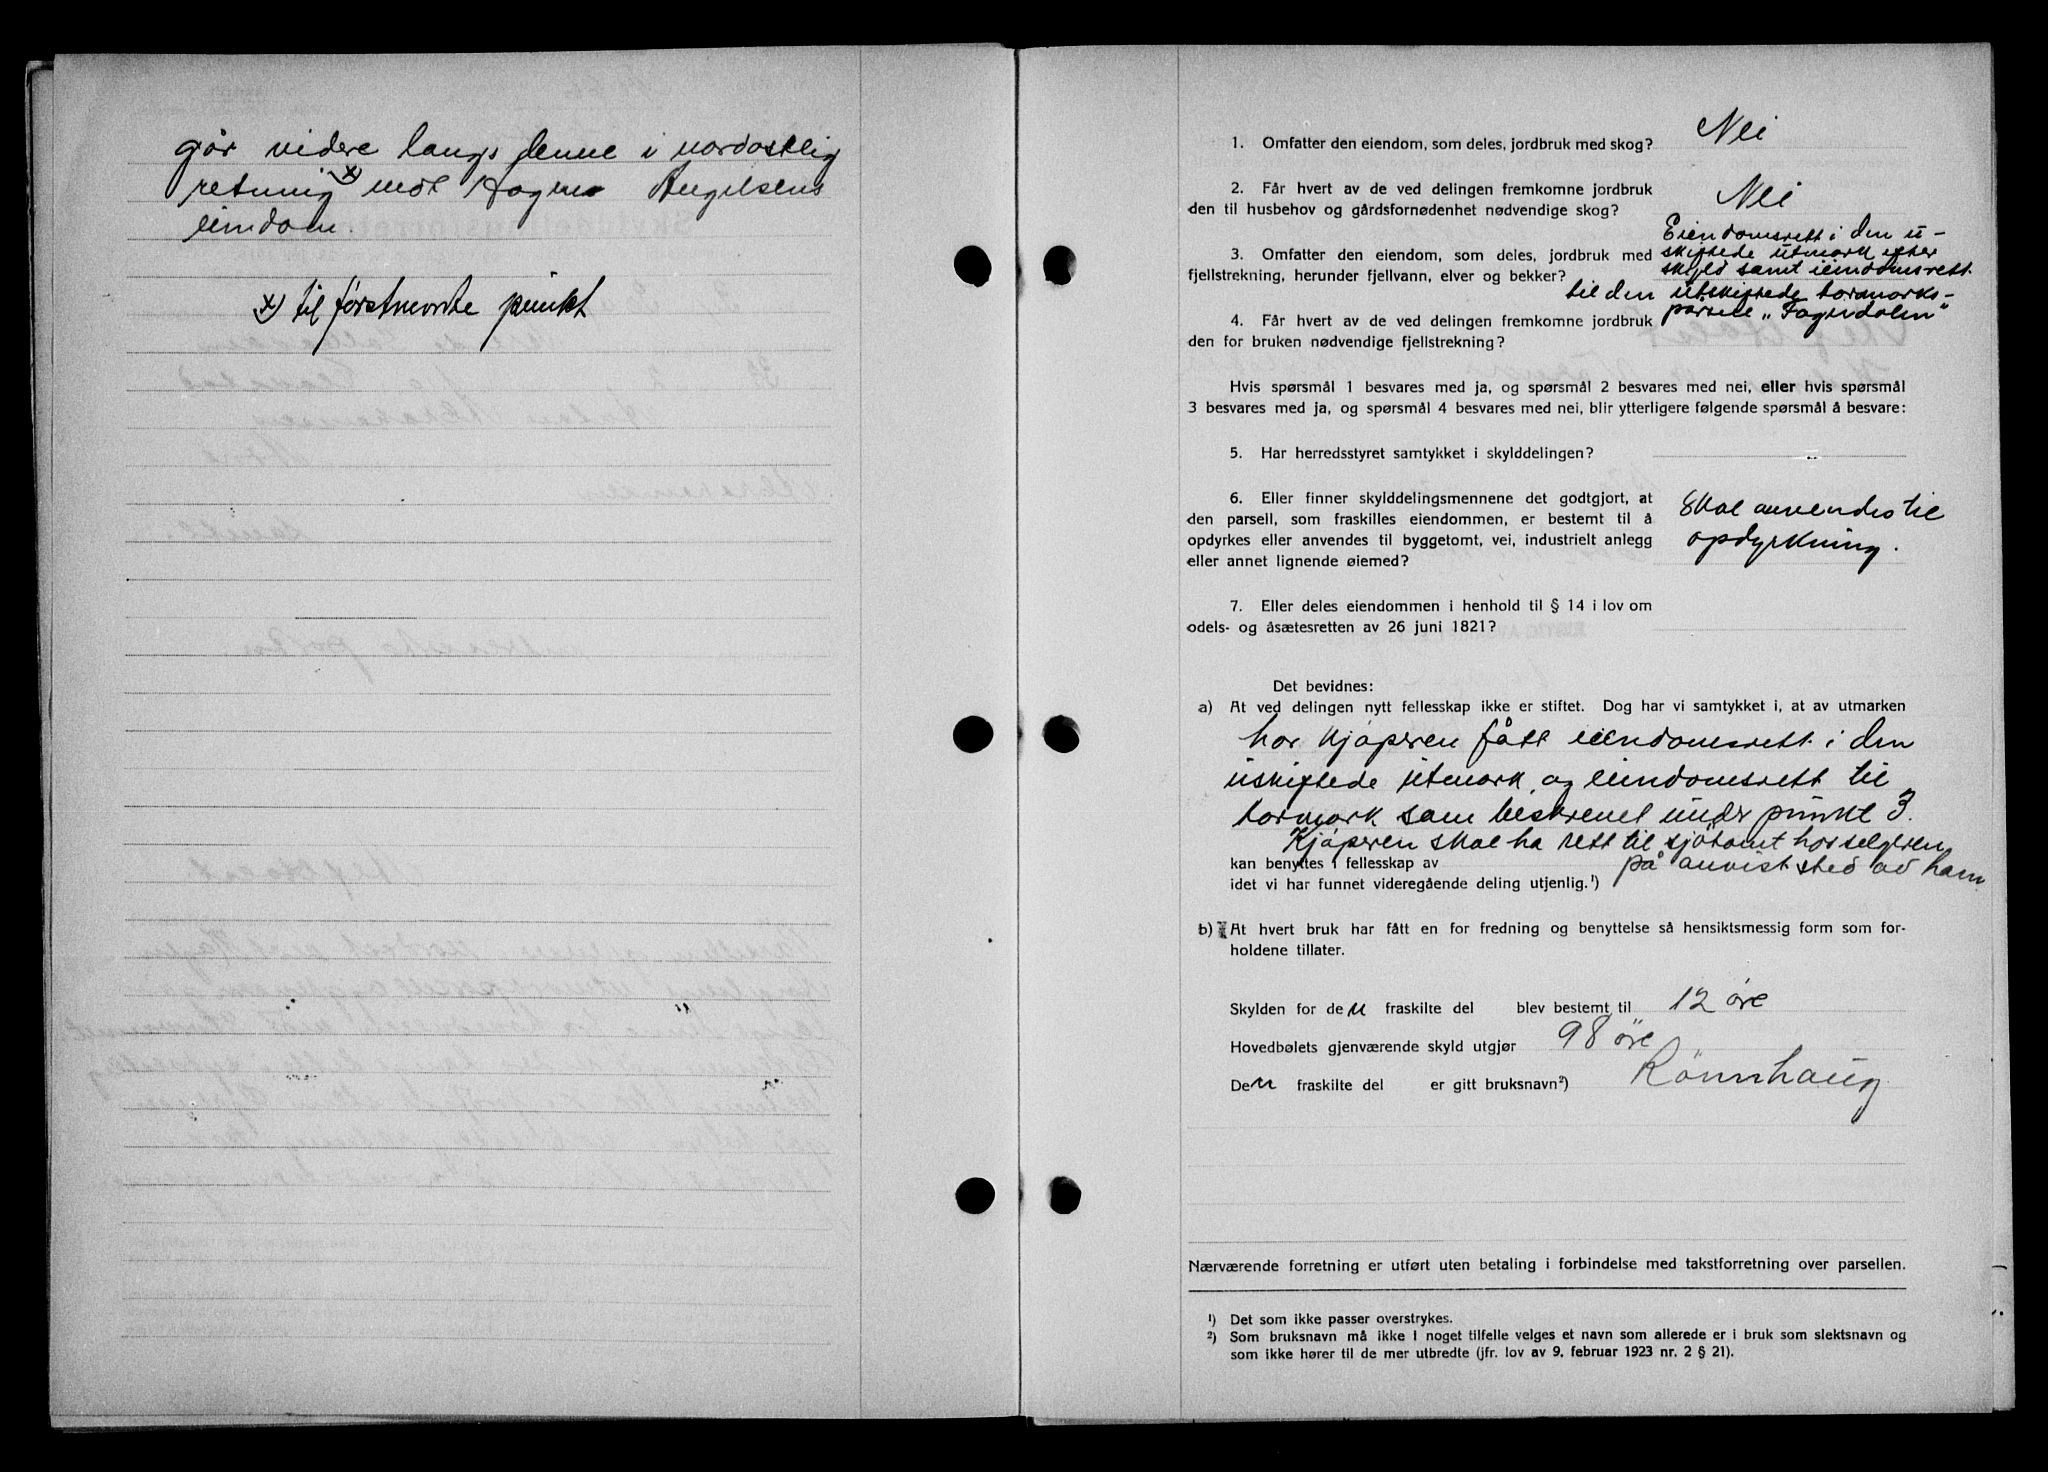 går videre langs denne i nordostlig
retning x) mot Hagen Angelsens
eiendom.
x) til førstnevnte punkt
1. Omfatter den eiendom, som deles, jordbruk med skog? Nei
2. Får hvert av de ved delingen fremkomne jordbruk
den til husbehov og gårdsfornødenhet nødvendige skog? Nei
3. Omfatter den eiendom, som deles, jordbruk med
fjellstrekning, herunder fjellvann, elver og bekker?
Eiendomsrett i den u-
skiftede utmark efter
skyld samt eiendomsrett
til den utskiftede tormarks-
parsell „Fagerdalen"
4. Får hvert av de ved delingen fremkomne jordbruk
den for bruken nødvendige fjellstrekning?
Hvis spørsmål 1 besvares med ja, og spørsmål 2 besvares med nei, eller hvis spørsmål
3 besvares med ja, og spørsmål 4 besvares med nei, blir ytterligere følgende spørsmål å besvare:
5. Har herredsstyret samtykket i skylddelingen?
6. Eller finner skylddelingsmennene det godtgjort, at
den parsell, som fraskilles eiendommen, er bestemt til å
opdyrkes eller anvendes til byggetomt, vei, industrielt anlegg
eller annet lignende øiemed?
Skal anvendes til
opdyrkning.
7. Eller deles eiendommen i henhold til § 14 i lov om
odels- og åsætesretten av 26 juni 1821?
Det bevidnes:
a) At ved delingen nytt fellesskap ikke er stiftet. Dog har vi samtykket i, at av utmarken
har kjøperen fått eiendomsrett i den
uskiftede utmark, og eiendomsrett til
tormark som beskrevet under punkt 3.
Kjøperen skal ha rett til sjøtomt hos selgeren
kan benyttes i fellesskap av på anvist sted av ham
idet vi har funnet videregående deling utjenlig.¹)
b) At hvert bruk har fått en for fredning og benyttelse så hensiktsmessig form som for-
holdene tillater.
Skylden for den fraskilte del blev bestemt til 12 øre
Hovedbølets gjenværende skyld utgjør 98 øre
Den fraskilte del er gitt bruksnavn²) Rønnhaug
Nærværende forretning er utført uten betaling i forbindelse med takstforretning over parsellen.
¹) Det som ikke passer overstrykes.
²) Som bruksnavn må ikke i noget tilfelle velges et navn som allerede er i bruk som slektsnavn og
som ikke hører til de mer utbredte (jfr. lov av 9. februar 1923 nr. 2 § 21).